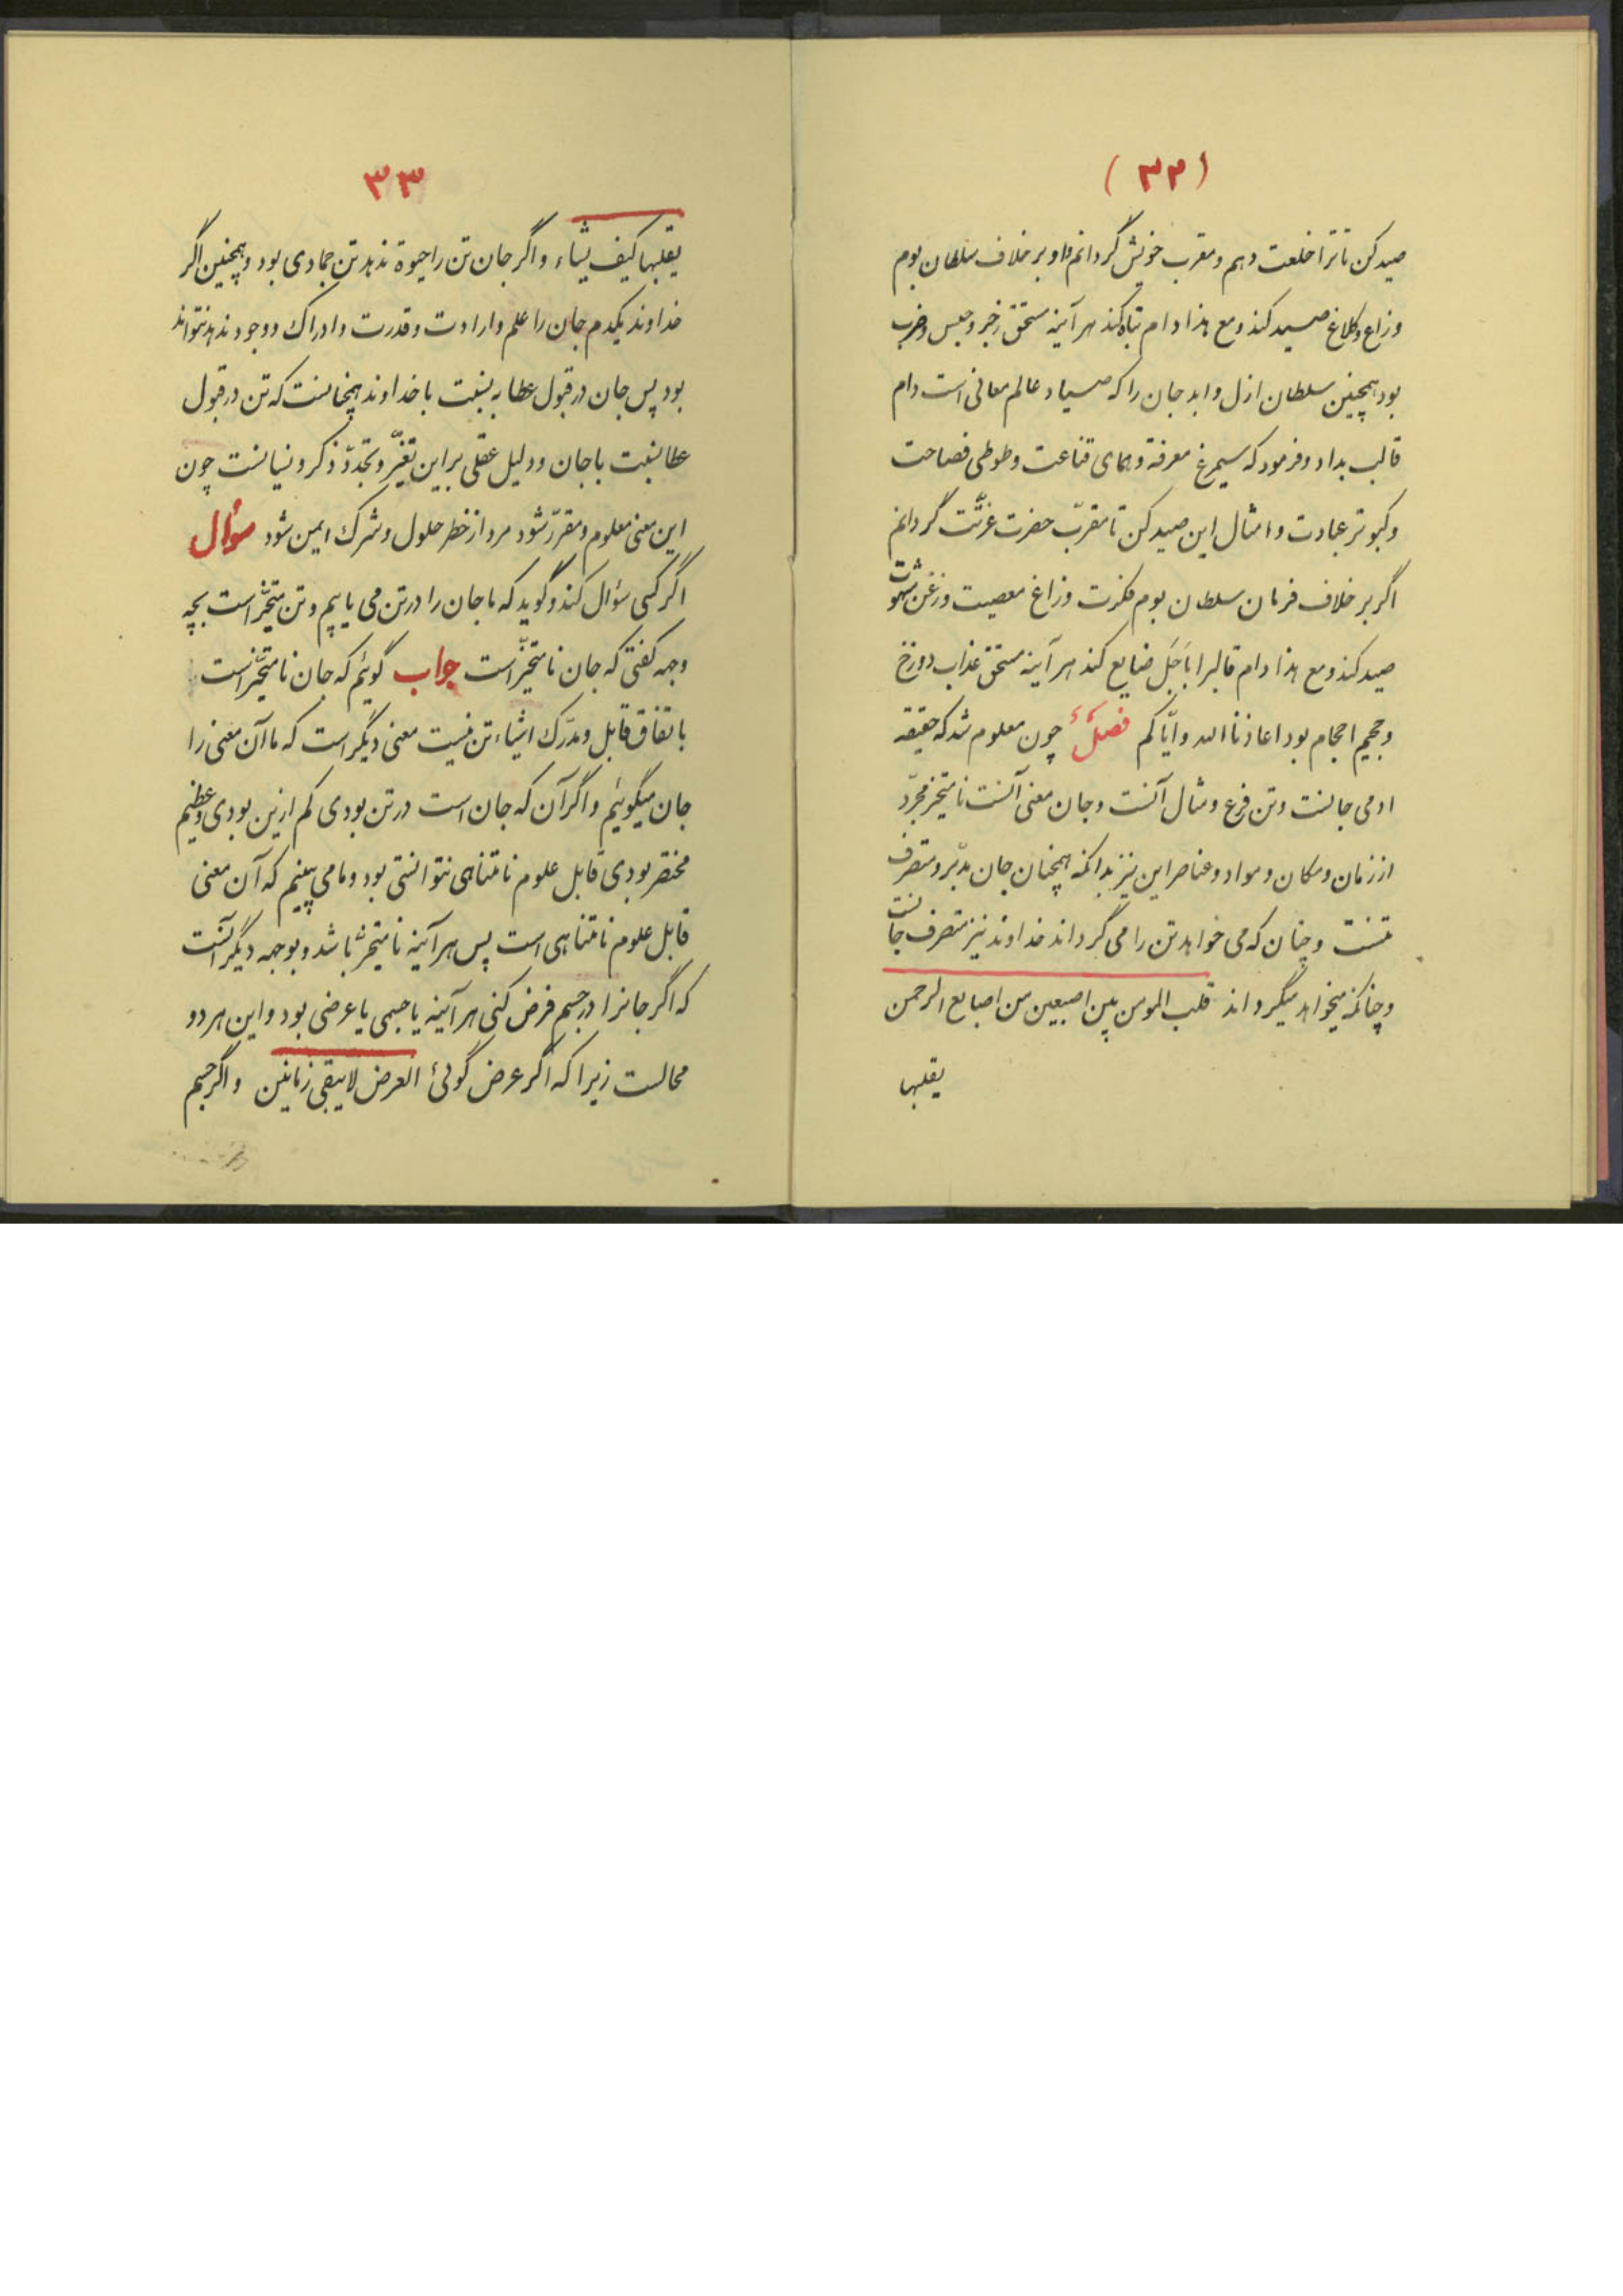 (۳۲)
صید کن تا ترا خلعت دهم و مقرب خویش گردانم او بر خلاف سلطان بوم
وزاغ و کلاغ صید کند و مع هذا دام تباه کند هر آینه مستحق زجر و حبس و ضرب
بود همچنین سلطان ازل و ابد جان را که صیاد عالم معانی است دام
قالب بداد و فرمود که سیمرغ معرفة و همای قناعت و طوطی فصاحت
وکبوتر عبادت و امثال این صید کن تا مقرّب حضرت عزّت گردانم
اگر بر خلاف فرمان سلطان بوم فکرت وزاغ معصیت وزغن شهوت
صید کند و مع هذا دام قالبرا باَجَل ضایع کند هر آینه مستحق عذاب دوزخ
وجحیم بود اعاذنا الله وایّاکم فصلٌ چون معلوم شد که حقیقه
ادمی جانست وتن فرع ومثال آنست وجان معنی آنست نامتحیز مجرّد
از زمان و مکان و مواد و عناصر این نیز بدانکه همچنان جان مدبّر و متصرف
تنست وچنان که می خواهد تن را می گرداند خداوند نیز متصرف جانست
وچنانکه میخواهد میگرداند قلب المومن بین اصبعین من اصابع الرحمن
یقلبها
۳۳
یقلبها کیف یشاء واگر جان تن را حیوة ندهد تن جمادی بود وهمچنین اگر
خداوند یکدم جان را علم و ارادت و قدرت و ادراک و وجود ندهد نتواند
بود پس جان در قبول عطا به نسبت با خداوند همچنانست که تن در قبول
عطا نسبت با جان ودلیل عقلی بر این تغیّر و تجدّد ذکر و نسیانست چون
این معنی معلوم ومقرّر شود مرد از خطر حلول وشرک ایمن شود سؤال
اگر کسی سؤال کند و گوید که ما جان را در تن می یابیم وتن متحیّز است بچه
وجه گفتی که جان نامتحیّز است جواب گوئیم که جان نامتحیّز است
باتفاق قابل ومدرک اشیاء تن نیست معنی دیگر است که ما آن معنی را
جان میگوئیم واگر آن که جان است در تن بودی کم ازین بودی وعظیم
مختصر بودی قابل علوم نامتناهی نتوانستی بود وما می بینیم که آن معنی
قابل علوم نامتناهی است پس هر آینه نامتحیز باشد وبوجهه دیگر آنست
که اگر جانرا در جسم فرض کنی هر آینه یا جسمی یا عرضی بود واین هر دو
محالست زیرا که اگر عرض گوئی العرض لایبقی زمانین واگر جسم